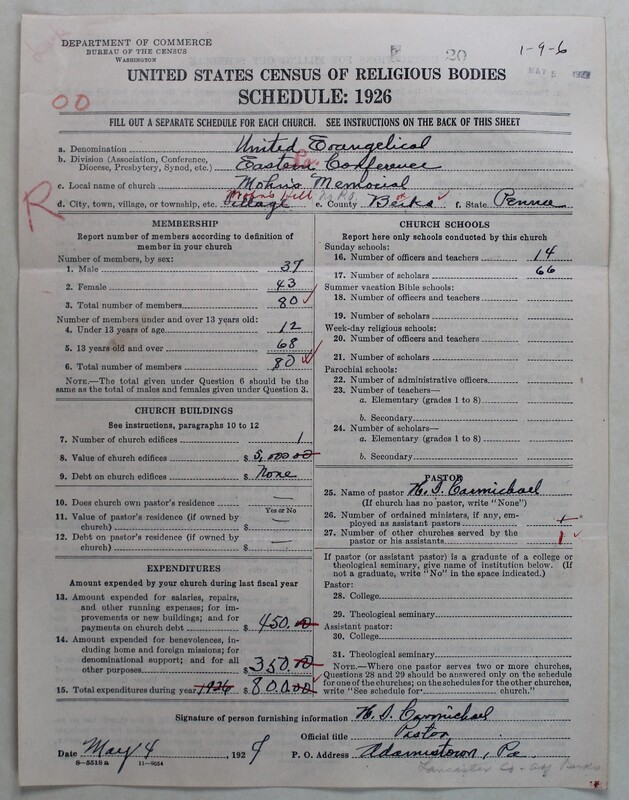 DEPARTMENT OF COMMERCE
BUREAU OF THE CENSUS
WASHINGTON
20
1-9-6
MAY 5
UNITED STATES CENSUS OF RELIGIOUS BODIES
SCHEDULE: 1926
OO
FILL OUT A SEPARATE SCHEDULE FOR EACH CHURCH. SEE INSTRUCTIONS ON THE BACK OF THIS SHEET
a. Denomination United Evangelical
b. Division (Association, Conference, Diocese, Presbytery, Synod, etc.) Eastern Pa. Conference
c. Local name of church Mohn's Memorial
d. City, town, village, or township, etc. Village Mohn's Hill e. County Berks f. State Penna
R
MEMBERSHIP
Report number of members according to definition of member in your church
Number of members, by sex:
1. Male 37
2. Female 43
3. Total number of members 80
Number of members under and over 13 years old:
4. Under 13 years of age 12
5. 13 years old and over 68
6. Total number of members 80
NOTE.—The total given under Question 6 should be the same as the total of males and females given under Question 3.
CHURCH BUILDINGS
See instructions, paragraphs 10 to 12
7. Number of church edifices 1
8. Value of church edifices $ 5,000.00
9. Debt on church edifices $ None
10. Does church own pastor's residence —
Yes or No
11. Value of pastor's residence (if owned by church) $ —
12. Debt on pastor's residence (if owned by church) $ —
EXPENDITURES
Amount expended by your church during last fiscal year
13. Amount expended for salaries, repairs, and other running expenses; for improvements or new buildings; and for payments on church debt $ 450.00
14. Amount expended for benevolences, including home and foreign missions; for denominational support; and for all other purposes $ 350.00
15. Total expenditures during year 1926 $ 800.00
CHURCH SCHOOLS
Report here only schools conducted by this church
Sunday schools:
16. Number of officers and teachers 14
17. Number of scholars 66
Summer vacation Bible schools:
18. Number of officers and teachers
19. Number of scholars
Week-day religious schools:
20. Number of officers and teachers
21. Number of scholars
Parochial schools:
22. Number of administrative officers
23. Number of teachers—
a. Elementary (grades 1 to 8)
b. Secondary
24. Number of scholars—
a. Elementary (grades 1 to 8)
b. Secondary
PASTOR
25. Name of pastor H. I. Carmichael
(If church has no pastor, write "None")
26. Number of ordained ministers, if any, employed as assistant pastors 1
27. Number of other churches served by the pastor or his assistants 1
If pastor (or assistant pastor) is a graduate of a college or theological seminary, give name of institution below. (If not a graduate, write "No" in the space indicated.)
Pastor:
28. College
29. Theological seminary
Assistant pastor:
30. College
31. Theological seminary
NOTE.—Where one pastor serves two or more churches, Questions 28 and 29 should be answered only on the schedule for one of the churches; on the schedules for the other churches, write "See schedule for church."
Signature of person furnishing information H. I. Carmichael
Official title Pastor
Date May 4, 1927 P. O. Address Adamstown, Pa
8—5518a 11—9054
Lancaster Co - adj Berks